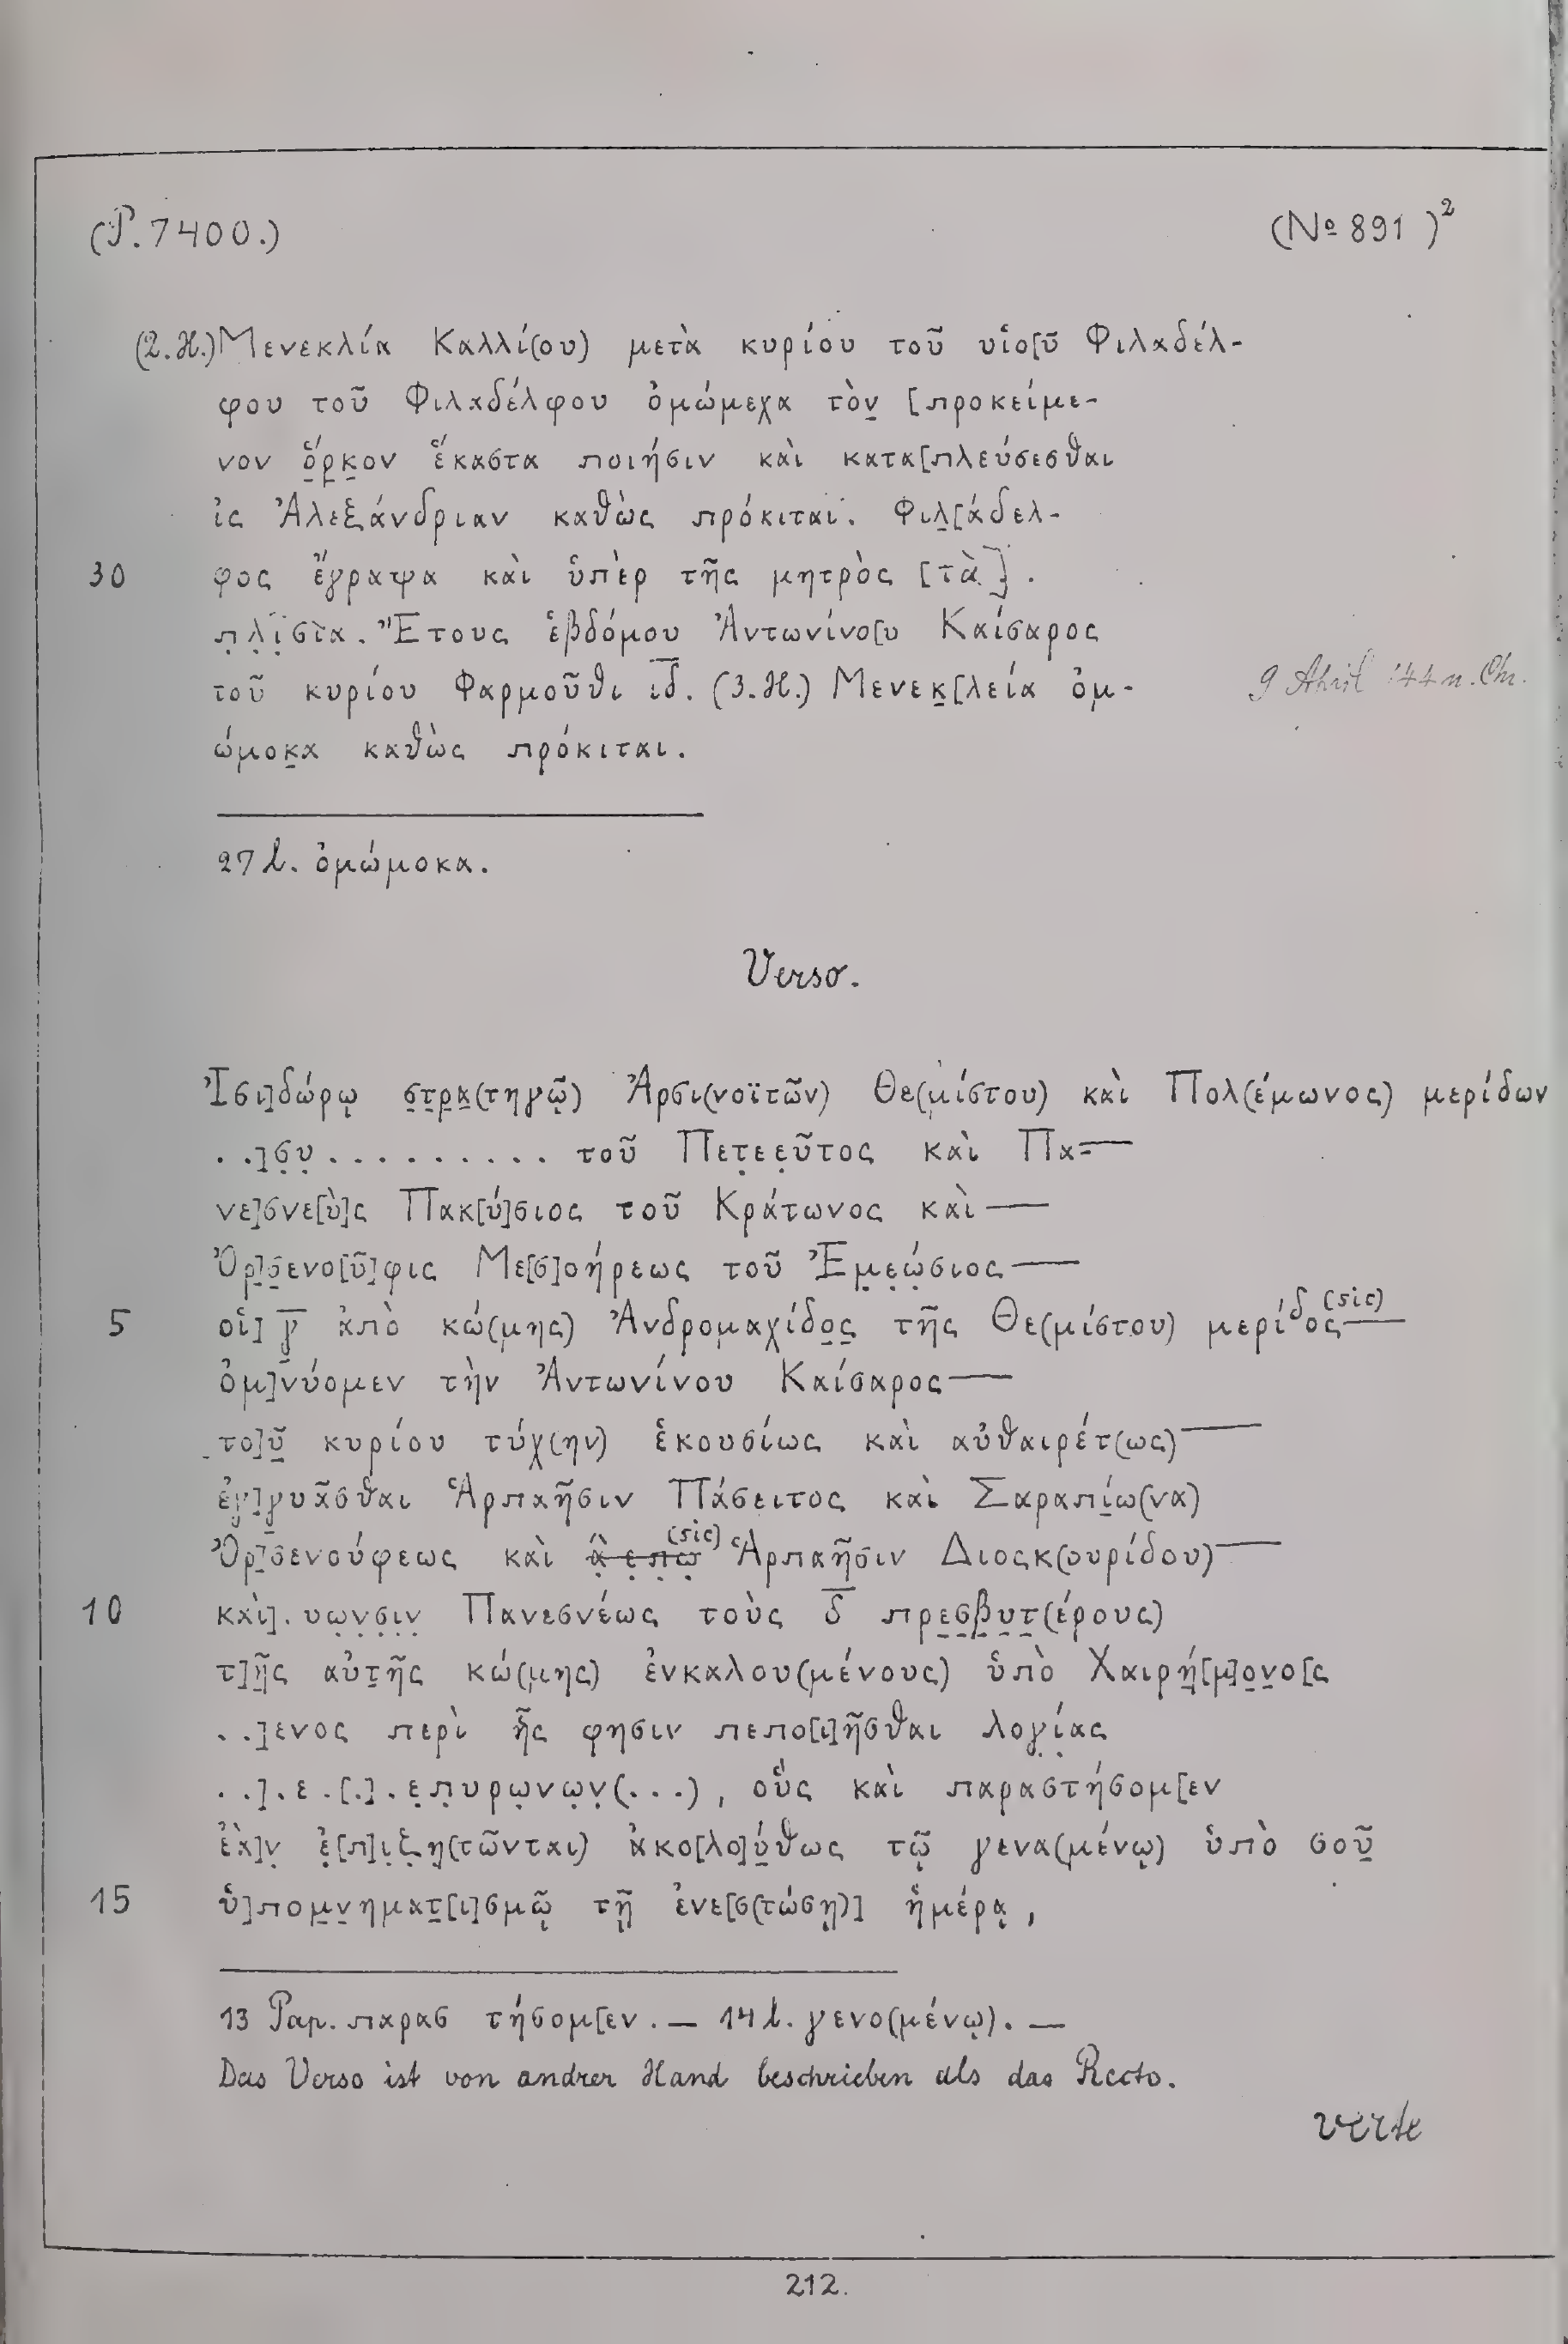 (P. 7400.) (№ 891)²
(2. H.) Μενεκλία Καλλί(ου) μετὰ κυρίου τοῦ υἱο[ῦ Φιλαδέλ-
φου τοῦ Φιλαδέλφου ὀμώμεχα τὸν̣ [προκείμε-
νον ὅ̣ρ̣κ̣ον ἕκαστα ποιήσιν καὶ κατα[πλεύσεσθαι
ἰς Ἀλεξάνδριαν καθὼς πρόκιται. Φιλ̣[άδελ-
30 φος ἔγραψα καὶ ὑπὲρ τῆς μητρὸς [τὰ].
π̣λ̣ῖ̣στα. Ἔτους ἑβδόμου Ἀντωνίνο[υ Καίσαρος
τοῦ κυρίου Φαρμοῦθι ι̅δ̅. (3. H.) Μενεκ̣[λεία ὀμ-
ώμοκ̣α καθὼς πρόκιται.
9 April 144 n. Chr.
27 l. ὀμώμοκα.
Verso.
Ἰσι]δώρῳ σ̣τ̣ρ̣α̣(τηγῷ) Ἀρσι(νοϊτῶν) Θε(μίστου) καὶ Πολ(έμωνος) μερίδων
. .]σ̣υ̣ . . . . . . . . . τοῦ Πετ̣εε̣ῦτος καὶ Πα=—
νε]σνε[ὺ]ς Πακ[ύ]σιος τοῦ Κράτωνος καὶ —
Ὀρ]σ̣ενο[ῦ]φις Με[σ]οήρεως τοῦ Ἐμ̣ε̣ώ̣σιος —
5 οἱ] γ̣̅ ἀπὸ κώ(μης) Ἀνδρομαχίδο̣ς̣ τῆς Θε(μίστου) μερίδος (sic) —
ὀμ]νύομεν τὴν Ἀντωνίνου Καίσαρος —
το]ῦ̣ κυρίου τύχ(ην) ἑκουσίως καὶ αὐθαιρέτ(ως) —
ἐγ]γ̣υᾶσθαι Ἁρπαῆσιν Πάσειτος καὶ Σαραπί̣ω(να)
Ὀρ]σενούφεως καὶ ~~ἃ̣ ε̣π̣ω̣~~ (sic) Ἁρπαῆσιν Διοσκ(ουρίδου) —
10 καὶ] . υω̣ν̣σ̣ι̣ν̣ Πανεσνέως τοὺς δ̅ πρε̣σ̣β̣υ̣τ̣(έρους)
τ]ῆ̣ς αὐτ̣ῆς κώ(μης) ἐνκαλου(μένους) ὑπὸ Χαιρή̣[μ]ο̣ν̣ο[ς
. .]ενος περὶ ἧς φησιν πεπο[ι]ῆσθαι λογ̣ί̣ας
. .] . ε . [.] . ε̣π̣υρω̣νω̣ν̣(. . .), οὓς καὶ παραστήσομ[εν
ἐὰ]ν̣ ἐ̣[π]ι̣ζ̣η̣(τῶνται) ἀκο[λο]ύ̣θως τῷ γενα(μένῳ) ὑπὸ σοῦ̣
15 ὑ]πομ̣ν̣ηματ̣[ι]σμῷ τῇ ἐνε[σ(τώσῃ)] ἡμέρᾳ,
13 Pap. παρασ τήσομ[εν. — 14 l. γενο(μένῳ). —
Das Verso ist von andrer Hand beschrieben als das Recto.
verte
212.